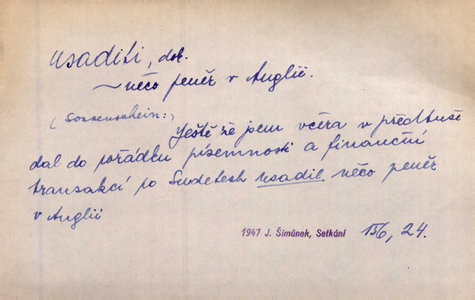 usaditi, dok.
~ něco peněz v Anglii.
(Sonnenschein:)
Ještě že jem včera v předtuše
dal do pořádku písemnosti a finanční
transakcí po Sudetech usadil něco peněz
v Anglii
1947 J. Šimůnek, Setkání 156, 24.